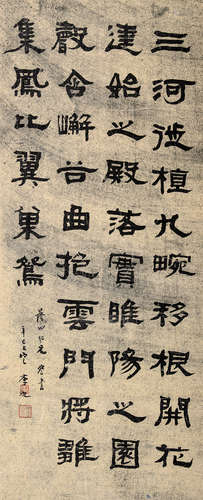 三河徙植九畹移根開花
建始之殿落實睢陽之園
聲含嶰谷曲抱雲門將雛
集鳳比翼巢鴛